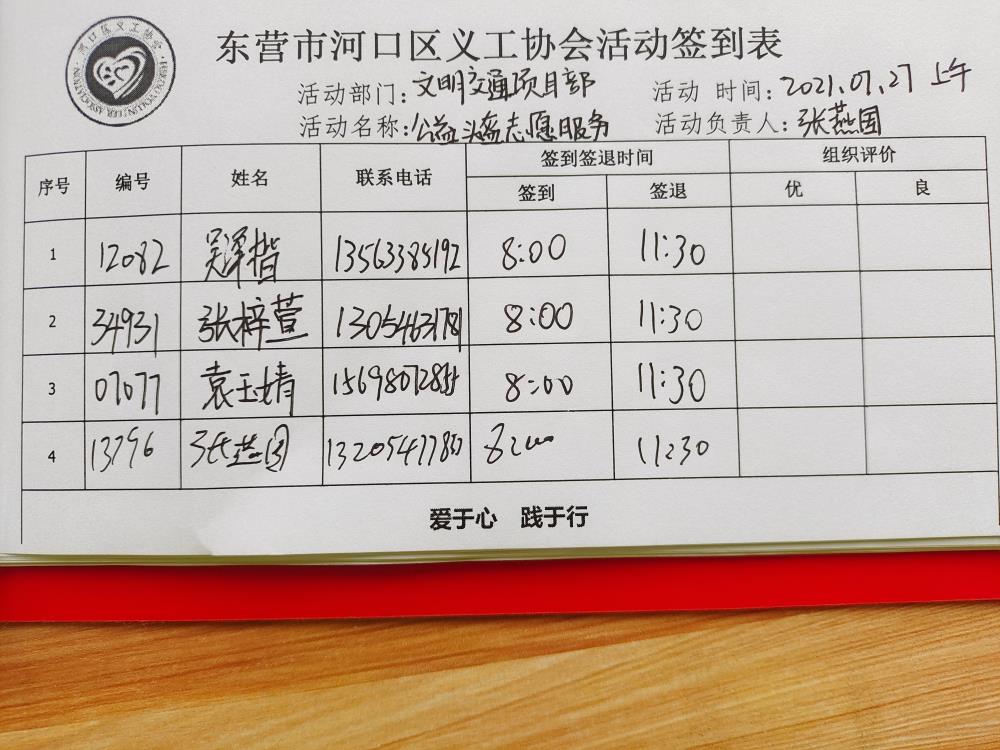 东营市河口区义工协会活动签到表
活动部门：文明交通项目部 活动 时间：2021.07.27 上午
活动名称：公益头盔志愿服务 活动负责人：张燕国
序号 编号 姓名 联系电话 签到签退时间 组织评价
签到 签退 优 良
1 12082 吴泽楷 13563385192 8:00 11:30
2 34931 张梓萱 13054631781 8:00 11:30
3 07077 袁玉婧 15698072855 8:00 11:30
4 13796 张燕国 8:00 11:30
爱于心 践于行
河口区义工协会